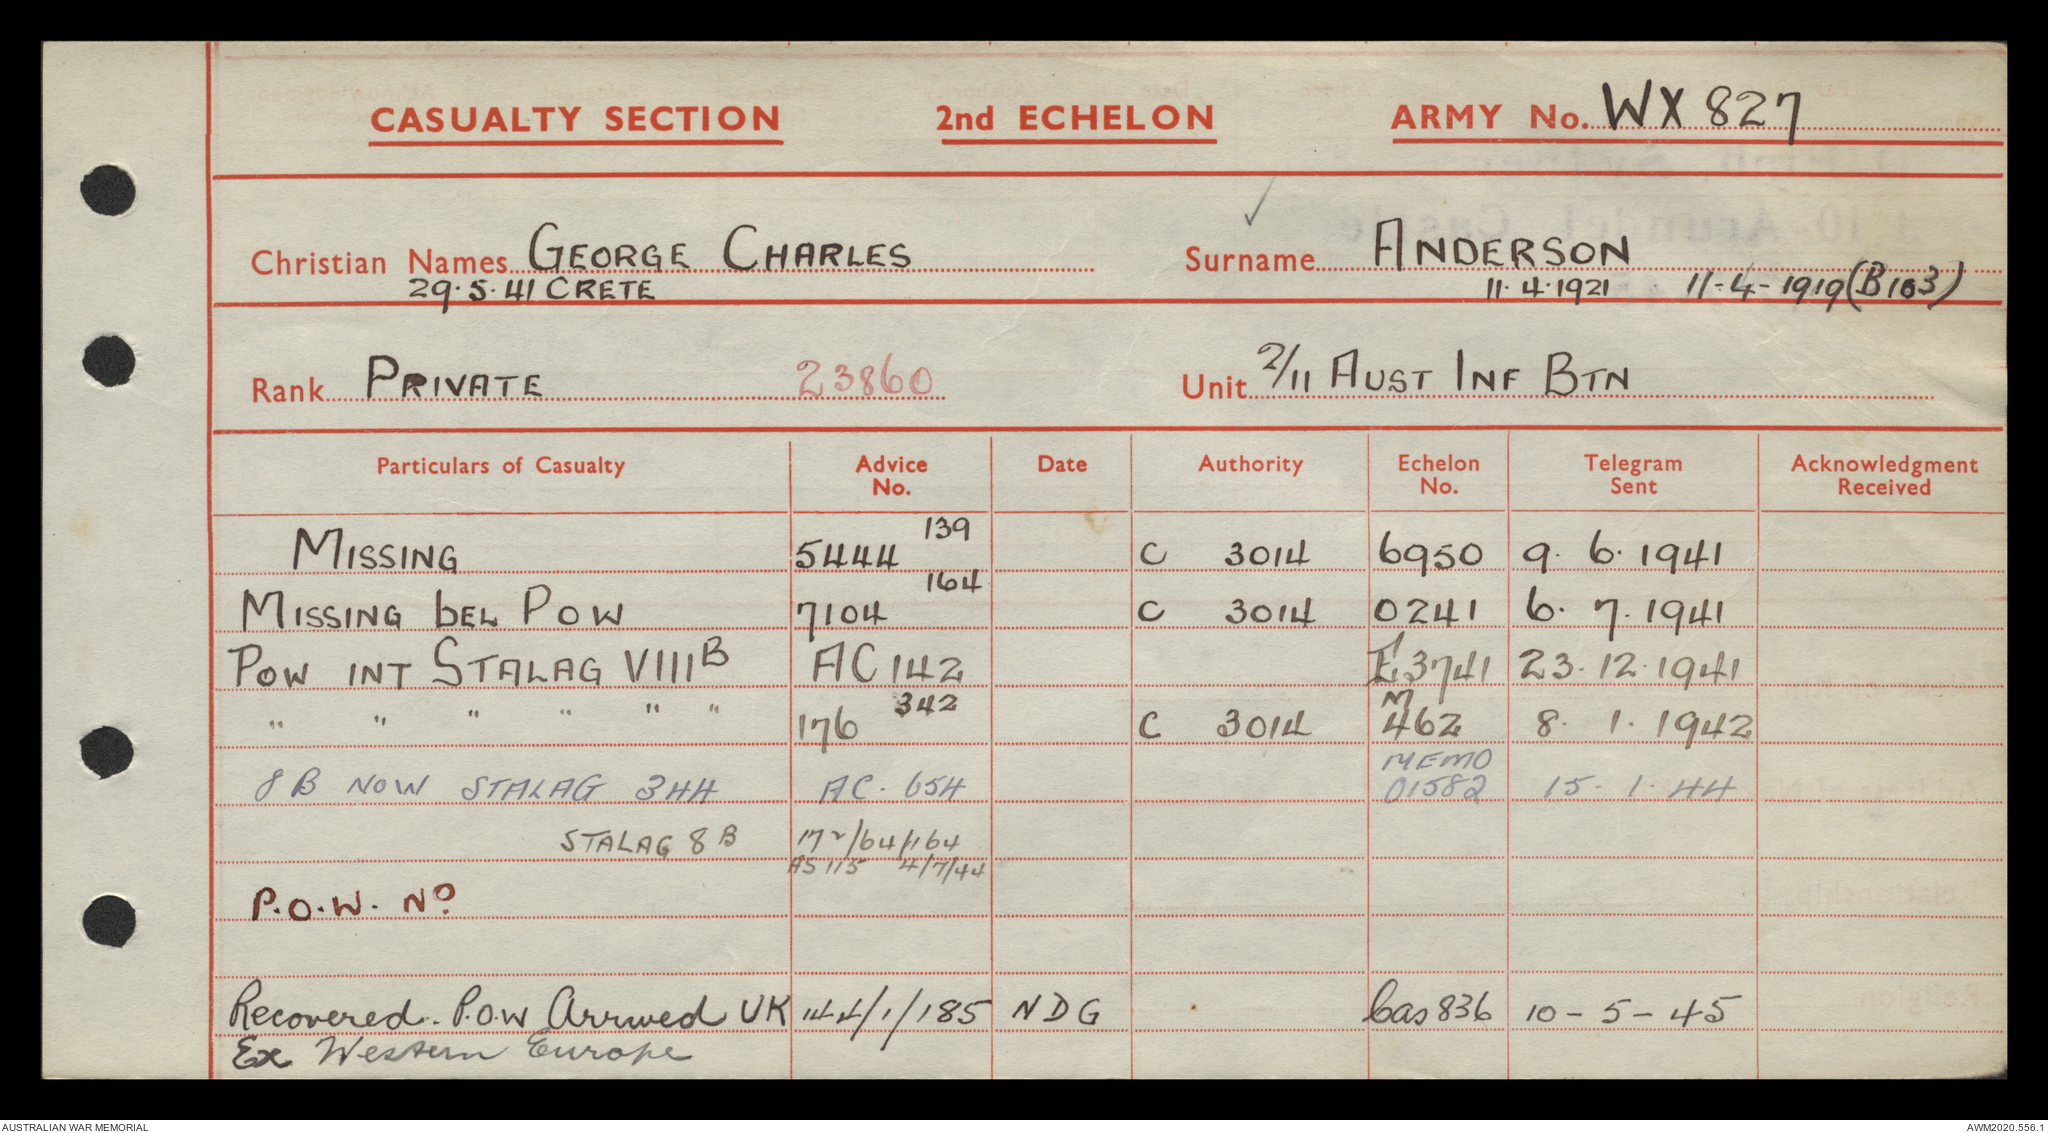 CASUALTY SECTION 2nd ECHELON ARMY No. WX 827
Christian Names GEORGE CHARLES Surname ANDERSON
29.5.41 CRETE 11.4.1921 11-4-1919 (B103)
Rank PRIVATE 23860 Unit 2/11 AUST INF BTN
Particulars of Casualty Advice No. Date Authority Echelon No. Telegram Sent Acknowledgment Received
MISSING 5444 139 C 3014 6950 9. 6. 1941
MISSING BEL POW 7104 164 C 3014 0241 6. 7. 1941
POW INT STALAG VIII B AC 142 E 3741 23. 12. 1941
" " " " " " 176 342 C 3014 M 462 8. 1. 1942
8 B NOW STALAG 344 AC. 654 MEMO 01582 15-1-44
STALAG 8 B 172/64/164
AS 115 4/7/44
P.O.W. No
Recovered. P.O.W Arrived UK 144/1/185 NDG Cas 836 10-5-45
Ex Western Europe
AUSTRALIAN WAR MEMORIAL AWM2020.556.1